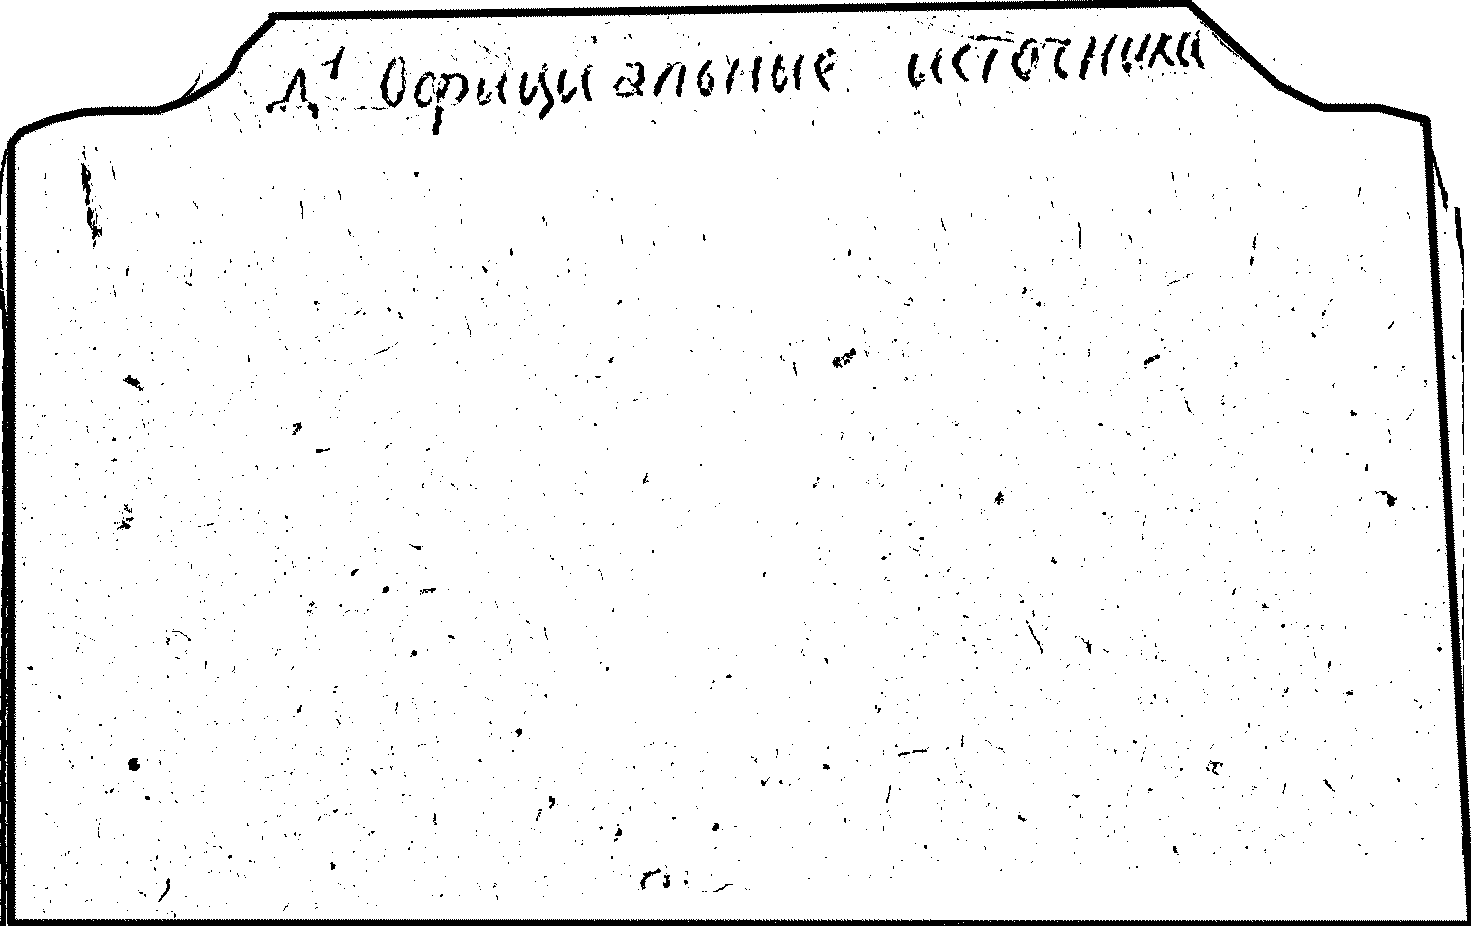 Д¹ Официальные источники